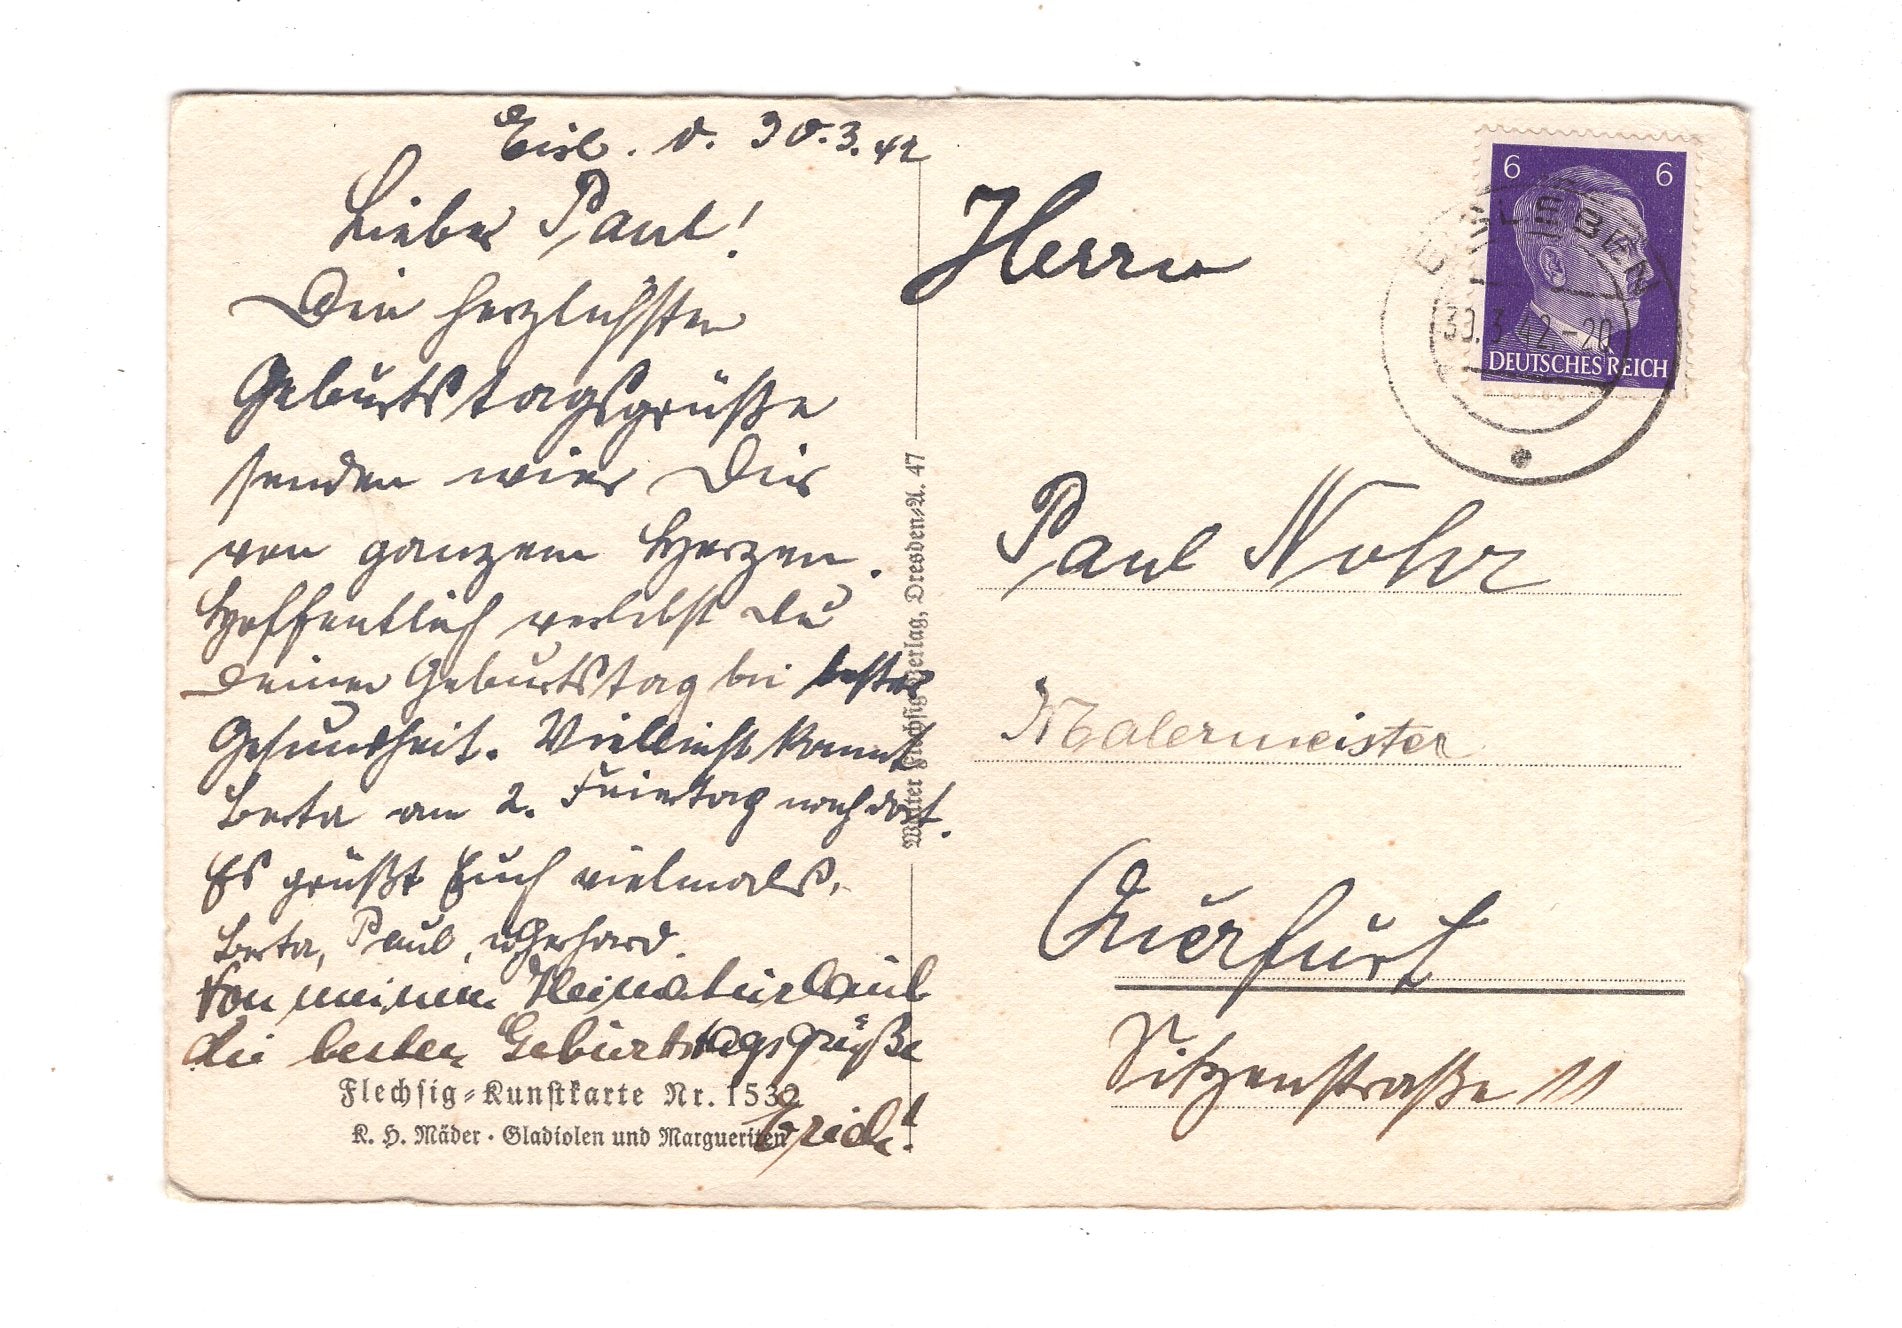 Eisl. d. 30.3.42
Lieber Paul!
Die herzlichsten
Geburtstagsgrüße
senden wir Dir
von ganzem Herzen.
Hoffentlich verlebst Du
Deinen Geburtstag bei bester
Gesundheit. Vielleicht kommt
Berta am 2. Feiertag nach dort.
Es grüßt Euch vielmals,
Berta, Paul, u Gerhard.
Von meinem Heimaturlaub
die besten Geburtstagsgrüße
Erich!
Flechsig-Kunstkarte Nr. 1532
K. H. Mäder · Gladiolen und Margueriten
Walter Flechsig Verlag, Dresden-A. 47
6 6
DEUTSCHES REICH
EISLEBEN
30.3.42.-20
Herrn
Paul Nohr
Malermeister
Querfurt
Sitzenstraße 11